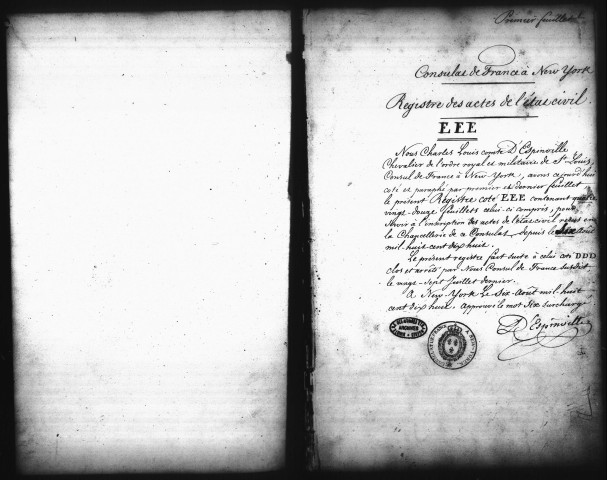 Premier feuillet
Consulat de France à New York
Registre des actes de l'état civil.
EEE
Nous Charles Louis comte D'Espinville
Chevalier de l'ordre royal et militaire de St Louis,
Consul de France à New-York, avons cejourd'hui
coté et paraphé par premier et dernier feuillet
le présent Registre coté EEE contenant quatre
vingt-douze feuillets celui-ci compris, pour
servir à l'inscription des actes de l'état civil reçus en
la Chancellerie de ce Consulat, depuis le Six août
mil-huit-cent dix huit.
Le présent registre fait suite à celui coté DDD
clos et arrêté par Nous Consul de France susdit
le vingt-sept Juillet dernier.
A New-York Le Six-Août mil-huit
cent dix huit. Approuvé le mot Six surchargé.
D'Espinville
ARCHIVES